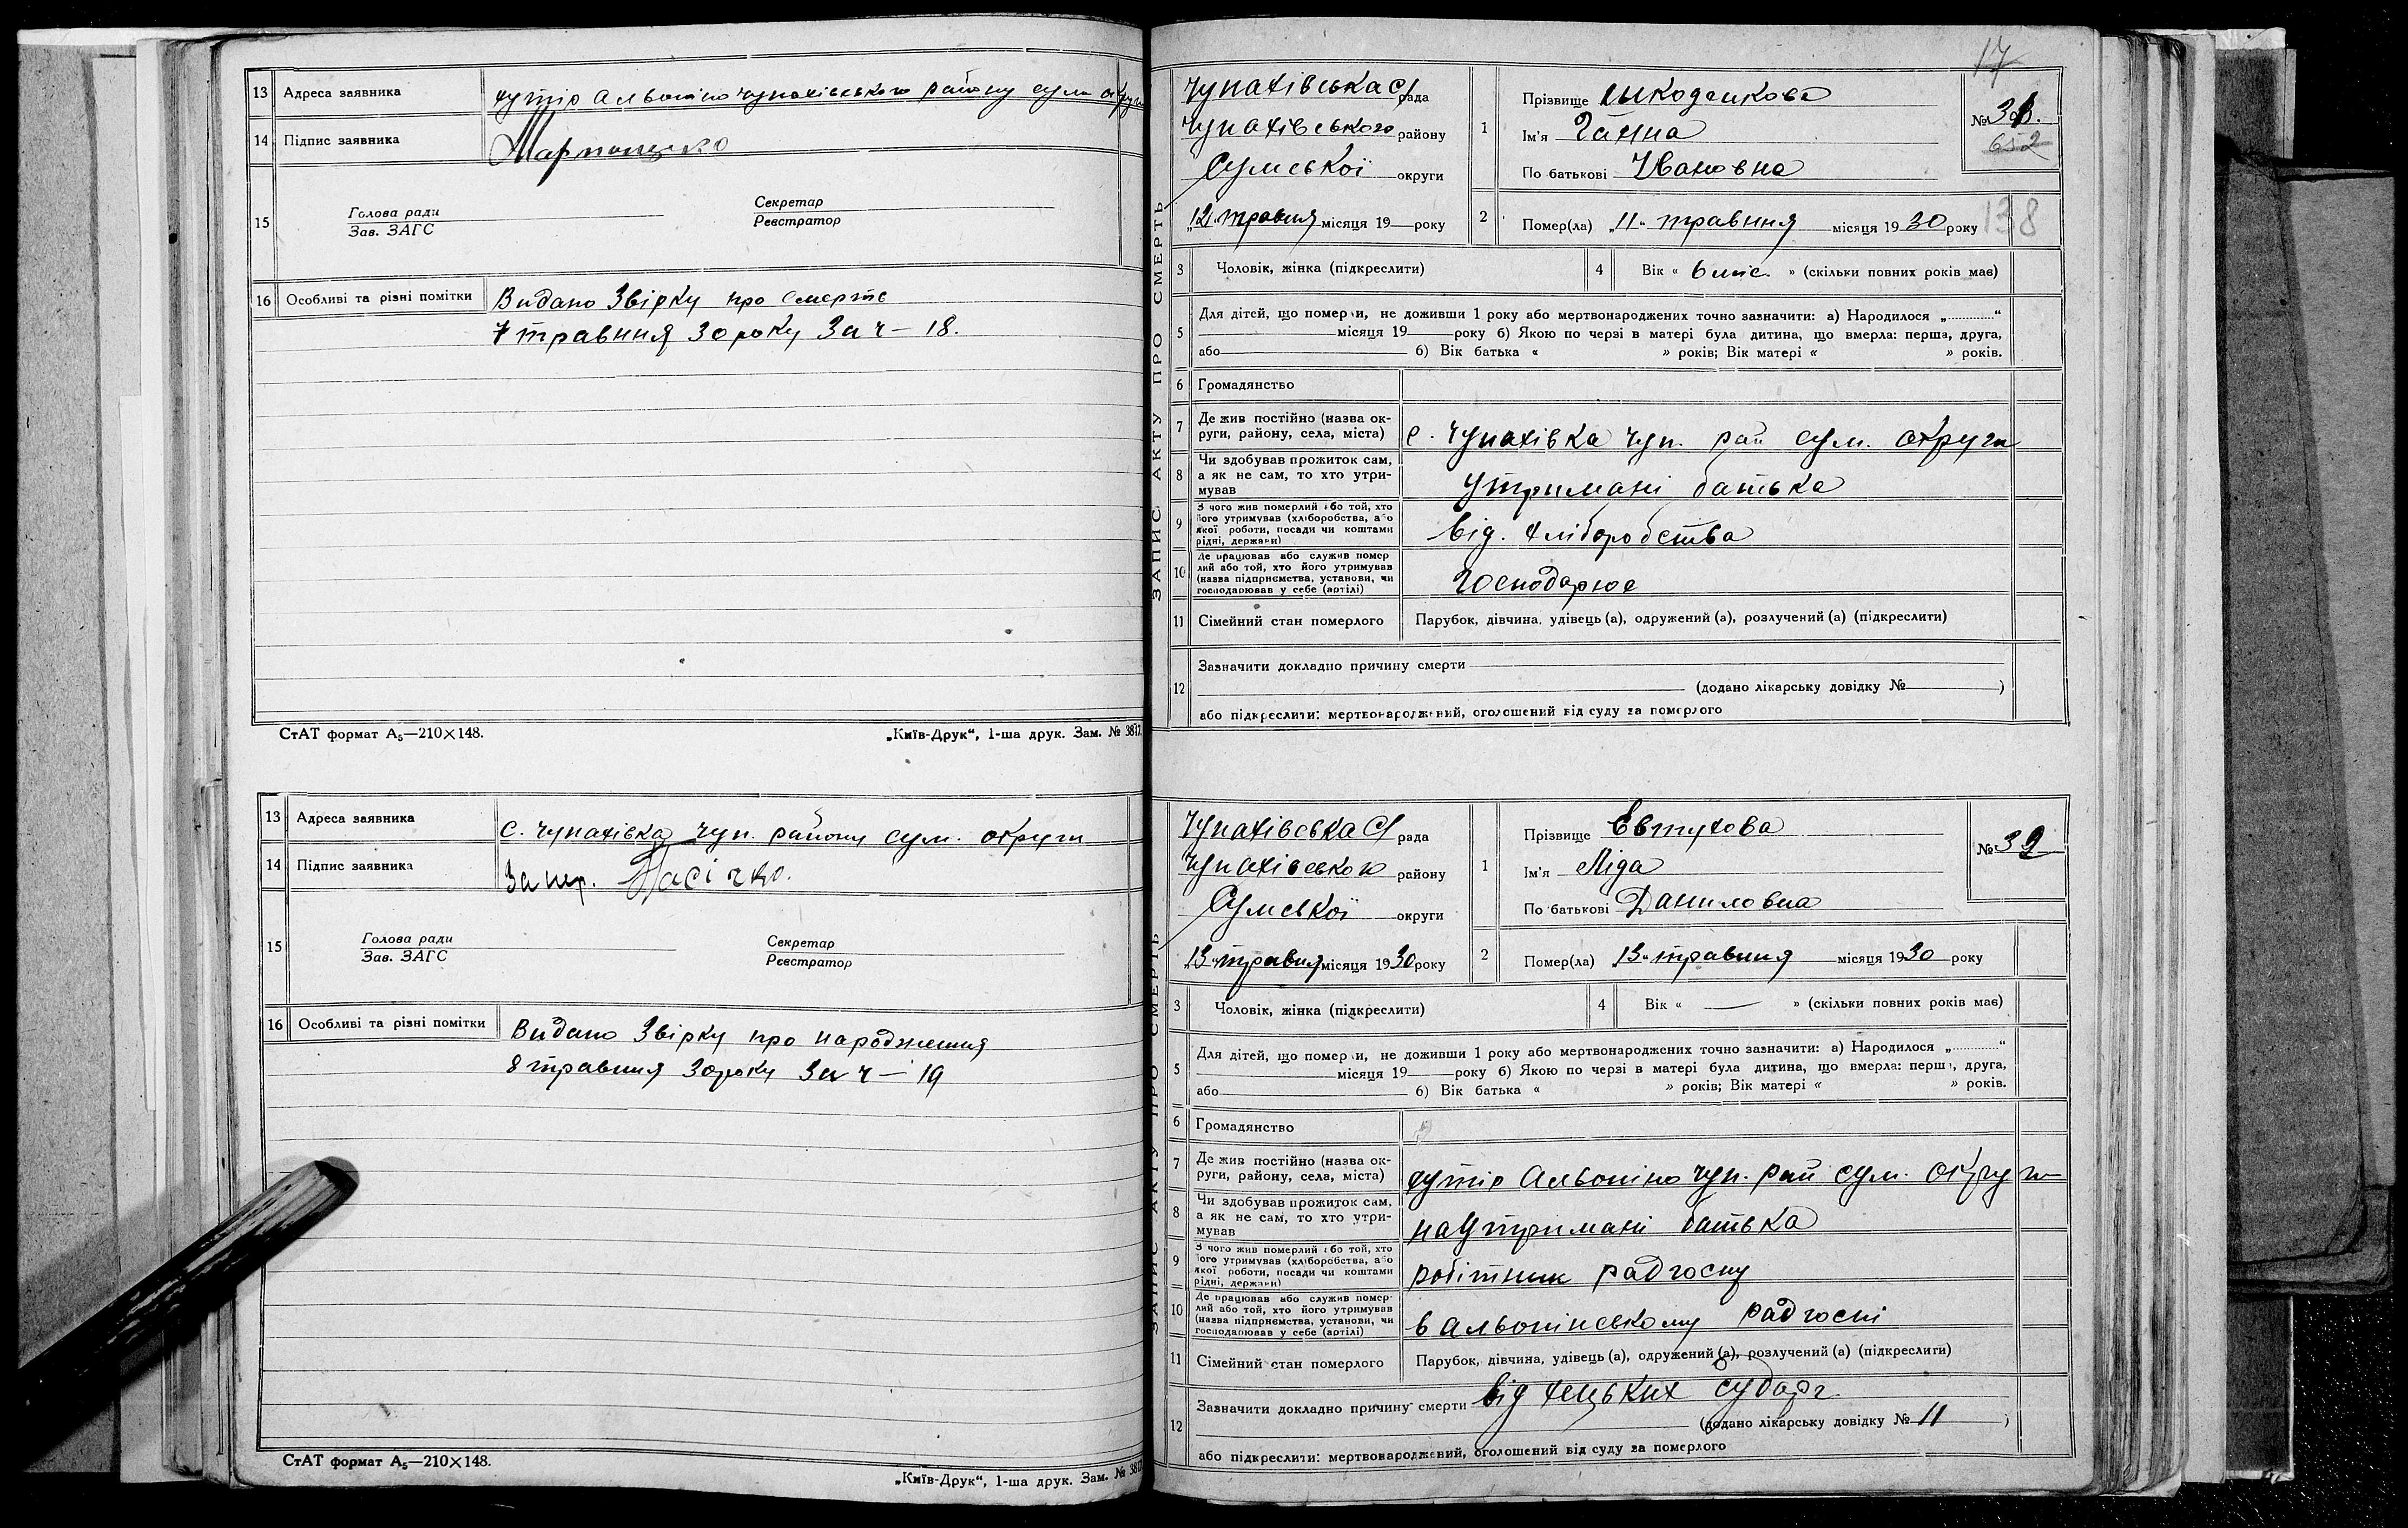 13 Адреса заявника хутір Альвоніно Чупахівського району Сум округи
14 Підпис заявника
15 Голова ради Секретар
Зав. ЗАГС Реєстратор
16 Особливі та різні помітки Видано Звірку про смерть
7 травння 30 року За ч – 18.
СтАТ формат А₅—210×148. „Київ-Друк“, 1-ша друк. Зам. № 3817.
13 Адреса заявника с. Чупахівка Чуп. району Сум. округи
14 Підпис заявника За нер. Пасічко.
15 Голова ради Секретар
Зав. ЗАГС Реєстратор
16 Особливі та різні помітки Видано Звірку про народження
8 травння 30 року За ч – 19
СтАТ формат А₅—210×148. „Київ-Друк“, 1-ша друк. Зам. №
17
ЗАПИС АКТУ ПРО СМЕРТЬ
Чупахівська С/рада
Чупахівського району
Сумської округи
„12“ травня місяця 19 року
1 Прізвище
Ім'я Ганна
По батькові Івановна
№ 31.
652
2 Помер(ла) „11“ травння місяця 1930 року 138
3 Чоловік, жінка (підкреслити) 4 Вік « 6 міс. » (скільки повних років має)
5 Для дітей, що померли, не доживши 1 року або мертвонароджених точно зазначити: а) Народилося „............“
місяця 19 року б) Якою по черзі в матері була дитина, що вмерла: перша, друга,
або б) Вік батька « » років; Вік матері « » років.
6 Громадянство
7 Де жив постійно (назва ок-
руги, району, села, міста) с. Чупахівка Чуп. рай Сум. округи
8 Чи здобував прожиток сам,
а як не сам, то хто утри-
мував Утримані батька
9 З чого жив померлий або той, хто
його утримував (хліборобства, або
якої роботи, посади чи коштами
рідні, держави) від. хліборобства
10 Де працював або служив помер
лий або той, хто його утримував
(назва підприємства, установи, чи
господарював у себе (артілі) Господарює
11 Сімейний стан померлого Парубок, дівчина, удівець (а), одружений (а), розлучений (а) (підкреслити)
12 Зазначити докладно причину смерти
(додано лікарську довідку № )
або підкреслити: мертвонароджений, оголошений від суду за померлого
ЗАПИС АКТУ ПРО СМЕРТЬ
Чупахівська С/рада
Чупахівського району
Сумської округи
„13“ травня місяця 1930 року
1 Прізвище Євтухова
Ім'я Ліда
По батькові Даниловна
№ 32
2 Помер(ла) „13“ травння місяця 1930 року
3 Чоловік, жінка (підкреслити) 4 Вік « — » (скільки повних років має)
5 Для дітей, що померли, не доживши 1 року або мертвонароджених точно зазначити: а) Народилося „............“
місяця 19 року б) Якою по черзі в матері була дитина, що вмерла: перша, друга,
або б) Вік батька « » років; Вік матері « » років.
6 Громадянство
7 Де жив постійно (назва ок-
руги, району, села, міста) хутір Альвоніно Чуп. рай Сум. округи
8 Чи здобував прожиток сам,
а як не сам, то хто утри-
мував на Утримані батька
9 З чого жив померлий або той, хто
його утримував (хліборобства, або
якої роботи, посади чи коштами
рідні, держави) робітник радгоспу
10 Де працював або служив помер-
лий або той, хто його утримував
(назва підприємства, установи, чи
господарював у себе (артілі) в Альвонінському радгоспі
11 Сімейний стан померлого Парубок, дівчина, удівець (а), одружений (а), розлучений (а) (підкреслити)
12 Зазначити докладно причину смерти від
(додано лікарську довідку № 11 )
або підкреслити: мертвонароджений, оголошений від суду за померлого